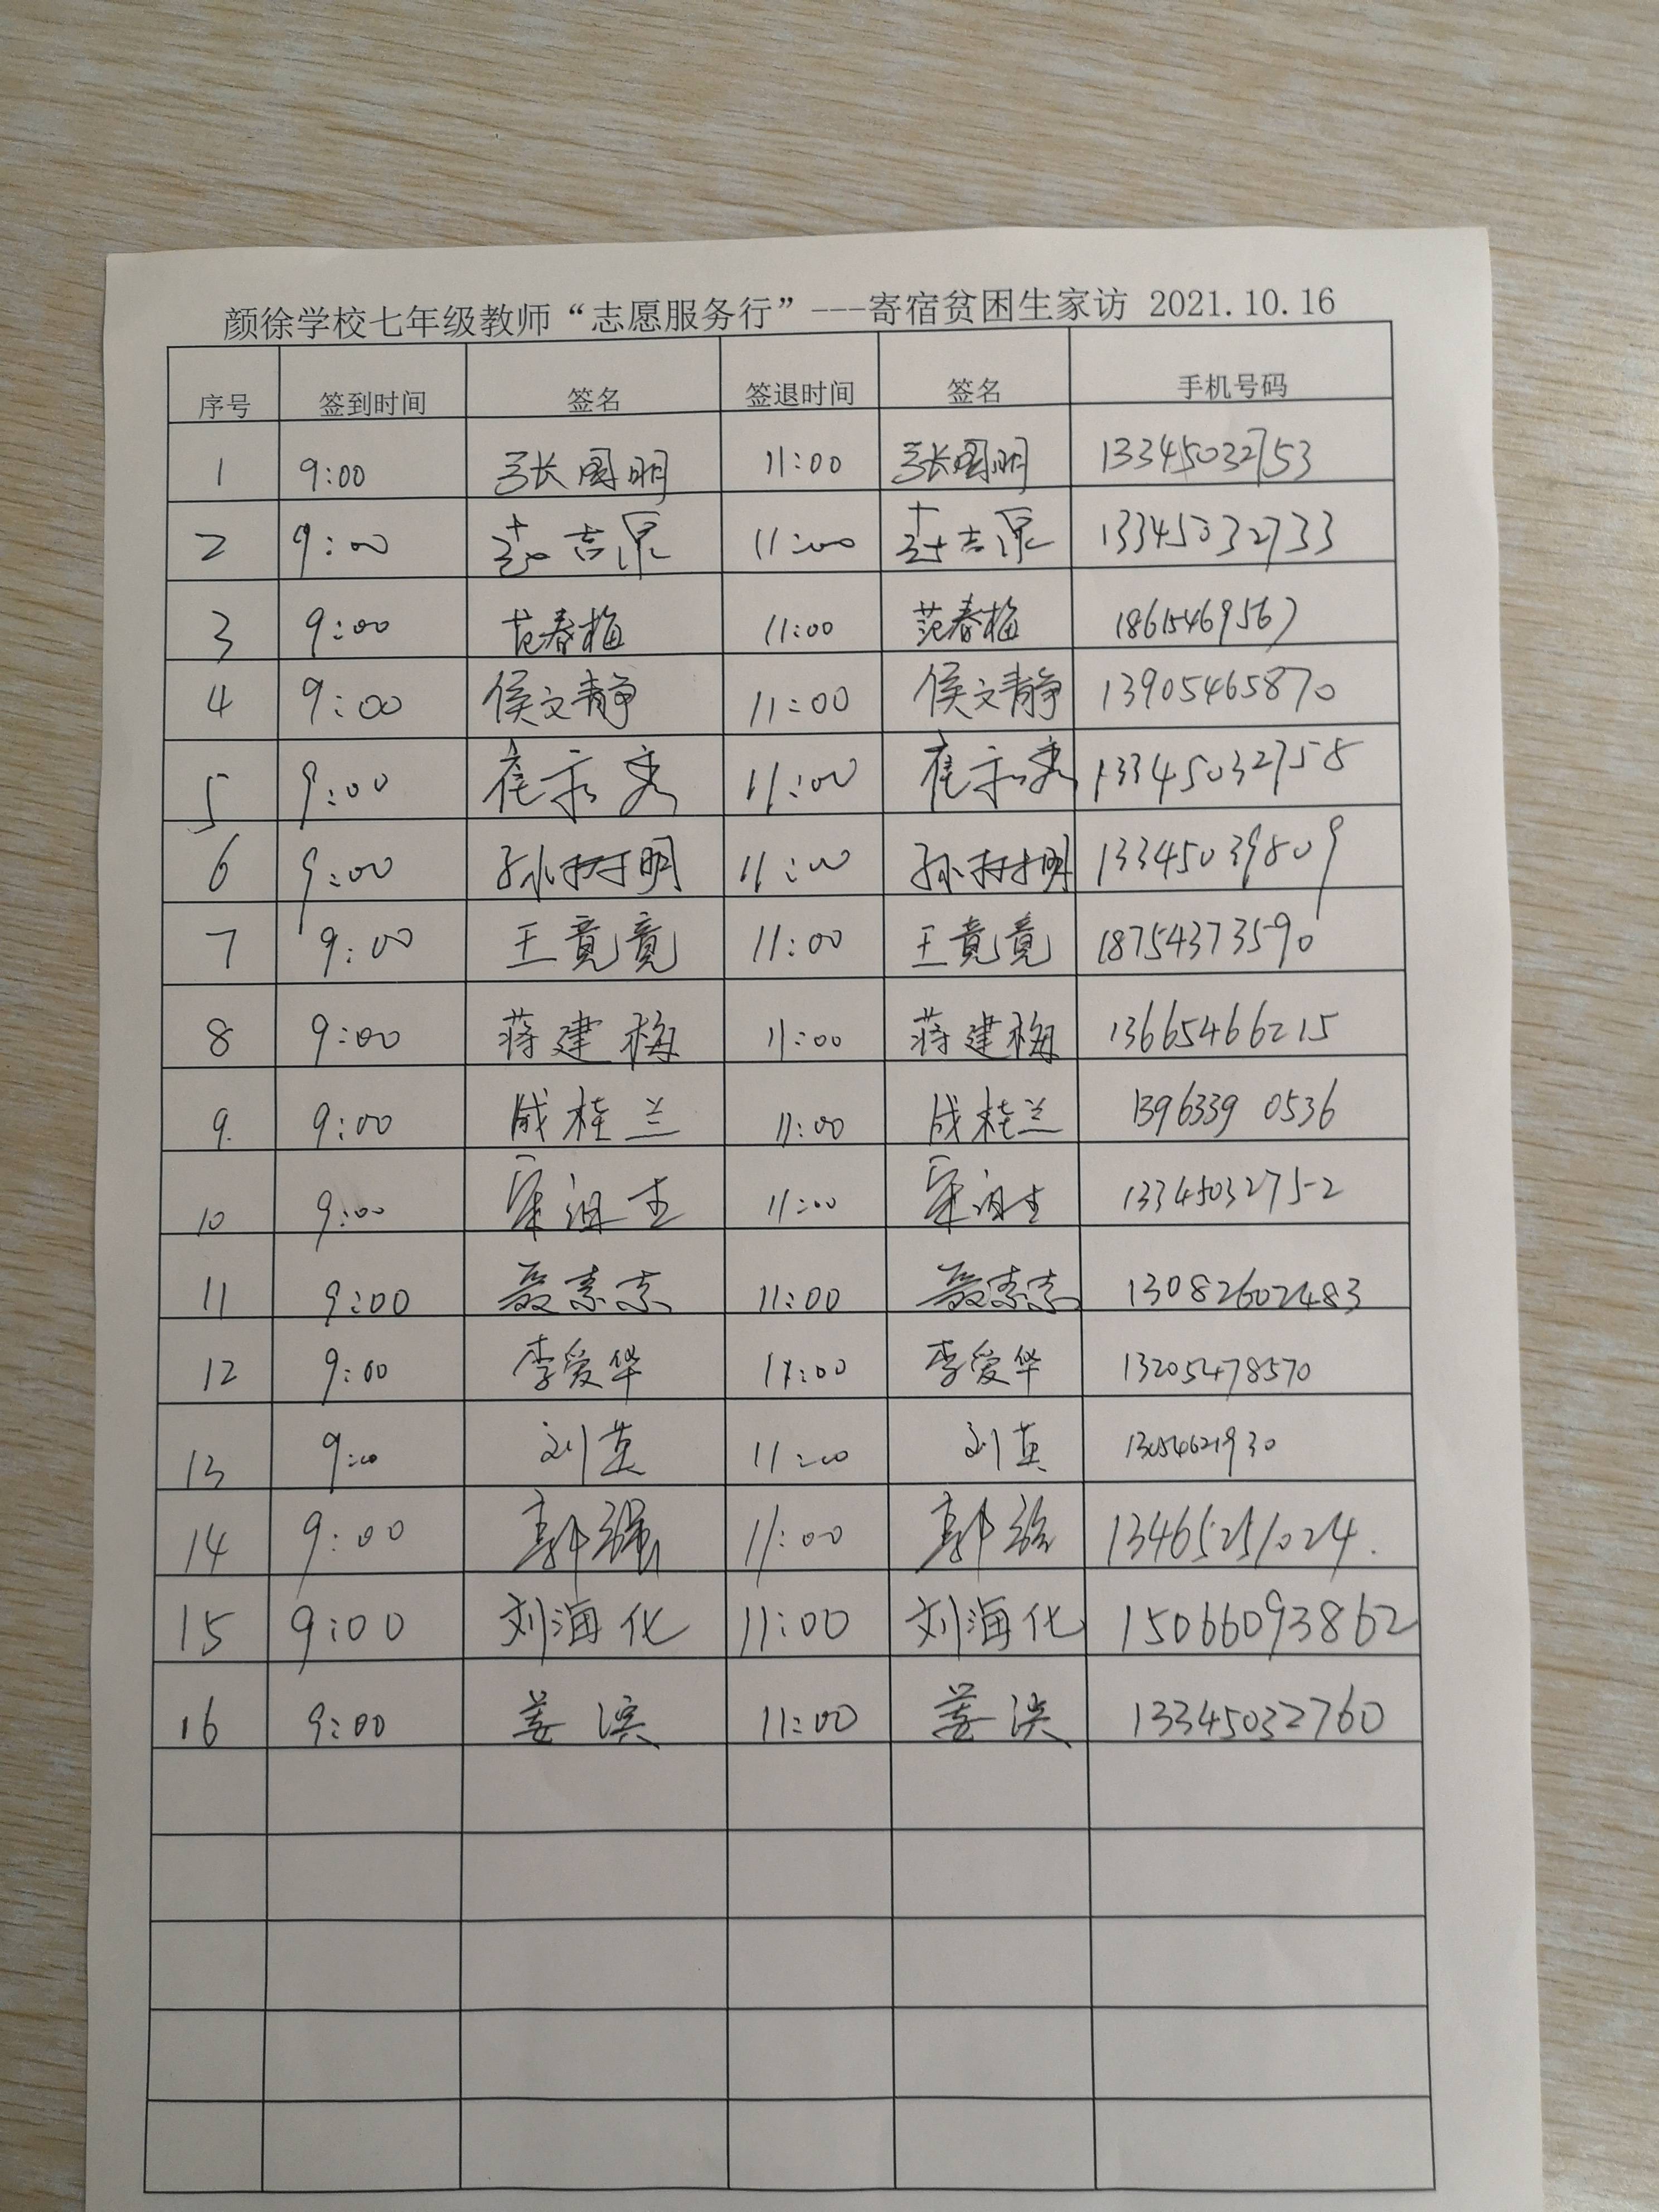 颜徐学校七年级教师“志愿服务行”---寄宿贫困生家访 2021.10.16
序号 签到时间 签名 签退时间 签名 手机号码
1 9:00 张图明 11:00 张图明 13345032753
2 9:00 吉泉 11:00 吉泉 13345032733
3 9:00 范春梅 11:00 范春梅 18615469567
4 9:00 侯文静 11:00 侯文静 13905465870
5 9:00 崔永秀 11:00 崔永秀 13345032758
6 9:00 孙树明 11:00 孙树明 13345039809
7 9:00 王竟竟 11:00 王竟竟 18754373590
8 9:00 蒋建梅 11:00 蒋建梅 13665466215
9 9:00 成桂兰 11:00 成桂兰 1396339 0536
10 9:00 11:00 13345032752
11 9:00 聂素志 11:00 聂素志 13082602483
12 9:00 李爱华 11:00 李爱华 13205478570
13 9:00 刘英 11:00 刘英
14 9:00 郭强 11:00 郭强 13465251024.
15 9:00 刘海化 11:00 刘海化 15066093862
16 9:00 姜滨 11:00 姜滨 13345032760